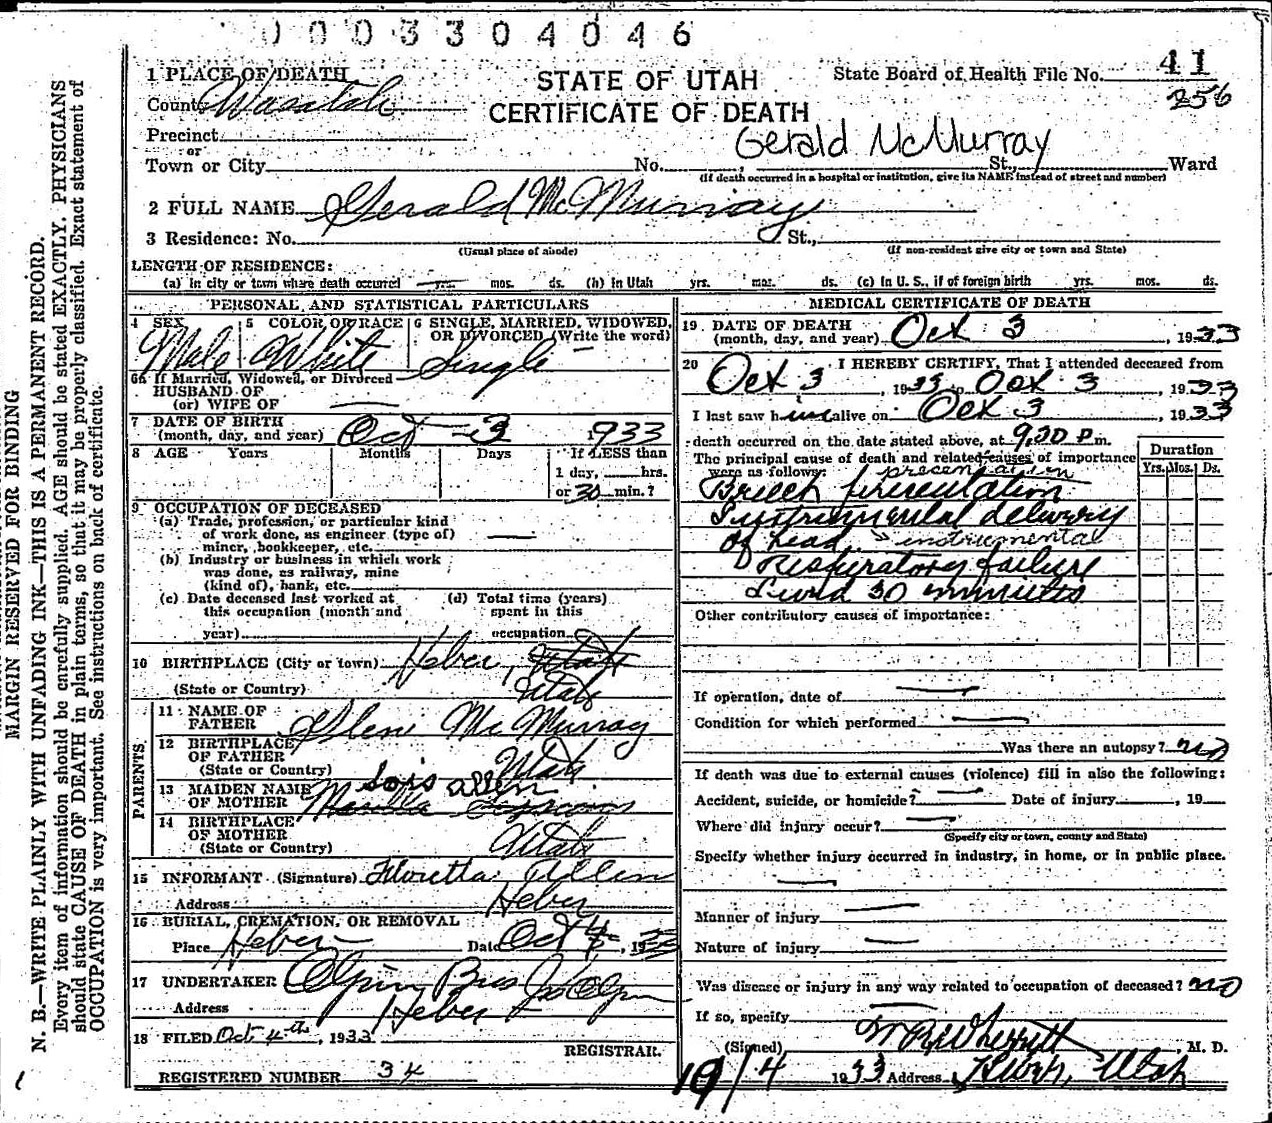 0003304046
1 PLACE OF DEATH
County Wasatch
Precinct
or
Town or City
STATE OF UTAH
CERTIFICATE OF DEATH
State Board of Health File No. 41
256
Gerald McMurray
No. St., Ward
(If death occurred in a hospital or institution, give its NAME instead of street and number)
2 FULL NAME Gerald McMurray
3 Residence: No. St.,
(Usual place of abode) (If non-resident give city or town and State)
LENGTH OF RESIDENCE:
(a) in city or town where death occurred yrs. mos. ds. (b) In Utah yrs. mos. ds. (c) In U. S., if of foreign birth yrs. mos. ds.
PERSONAL AND STATISTICAL PARTICULARS
4 SEX 5 COLOR OR RACE 6 SINGLE, MARRIED, WIDOWED, OR DIVORCED (Write the word)
Male White Single
6a If Married, Widowed, or Divorced
HUSBAND OF
(or) WIFE OF
7 DATE OF BIRTH
(month, day, and year) Oct 3 1933
8 AGE Years Months Days If LESS than
1 day, hrs.
or 30 min.?
9 OCCUPATION OF DECEASED
(a) Trade, profession, or particular kind
of work done, as engineer (type of)
miner, bookkeeper, etc.
(b) Industry or business in which work
was done, as railway, mine
(kind of), bank, etc.
(c) Date deceased last worked at
this occupation (month and
year)
(d) Total time (years)
spent in this
occupation
10 BIRTHPLACE (City or town) Heber, Utah
(State or Country) Utah
PARENTS
11 NAME OF
FATHER Glen McMurray
12 BIRTHPLACE
OF FATHER
(State or Country) Utah
Lois Allen
13 MAIDEN NAME
OF MOTHER
14 BIRTHPLACE
OF MOTHER
(State or Country) Utah
15 INFORMANT (Signature) Floretta Allen
Address Heber
16 BURIAL, CREMATION, OR REMOVAL
Place Heber Date Oct , 19
17 UNDERTAKER Olpin Bros
Address Heber
18 FILED Oct 4th, 1933
REGISTRAR.
REGISTERED NUMBER 34
MEDICAL CERTIFICATE OF DEATH
19 DATE OF DEATH
(month, day, and year) Oct 3, 1933
20 I HEREBY CERTIFY, That I attended deceased from
Oct 3 1933 to Oct 3 1933
I last saw him alive on Oct 3 1933
death occurred on the date stated above, at 9:30 P.m.
The principal cause of death and related causes of importance
were as follows: presentation
Breech presentation
Instrumental delivery
of head instrumental
Respiratory failure
Lived 30 minutes
Duration
Yrs. Mos. Ds.
Other contributory causes of importance:
If operation, date of
Condition for which performed
Was there an autopsy? no
If death was due to external causes (violence) fill in also the following:
Accident, suicide, or homicide? Date of injury, 19
Where did injury occur?
(Specify city or town, county and State)
Specify whether injury occurred in industry, in home, or in public place.
Manner of injury
Nature of injury
Was disease or injury in any way related to occupation of deceased? no
If so, specify
(Signed) , M. D.
10/4 1933 Address Heber, Utah
MARGIN RESERVED FOR BINDING
N. B.—WRITE PLAINLY WITH UNFADING INK—THIS IS A PERMANENT RECORD.
Every item of information should be carefully supplied. AGE should be stated EXACTLY. PHYSICIANS
should state CAUSE OF DEATH in plain terms, so that it may be properly classified. Exact statement of
OCCUPATION is very important. See instructions on back of certificate.